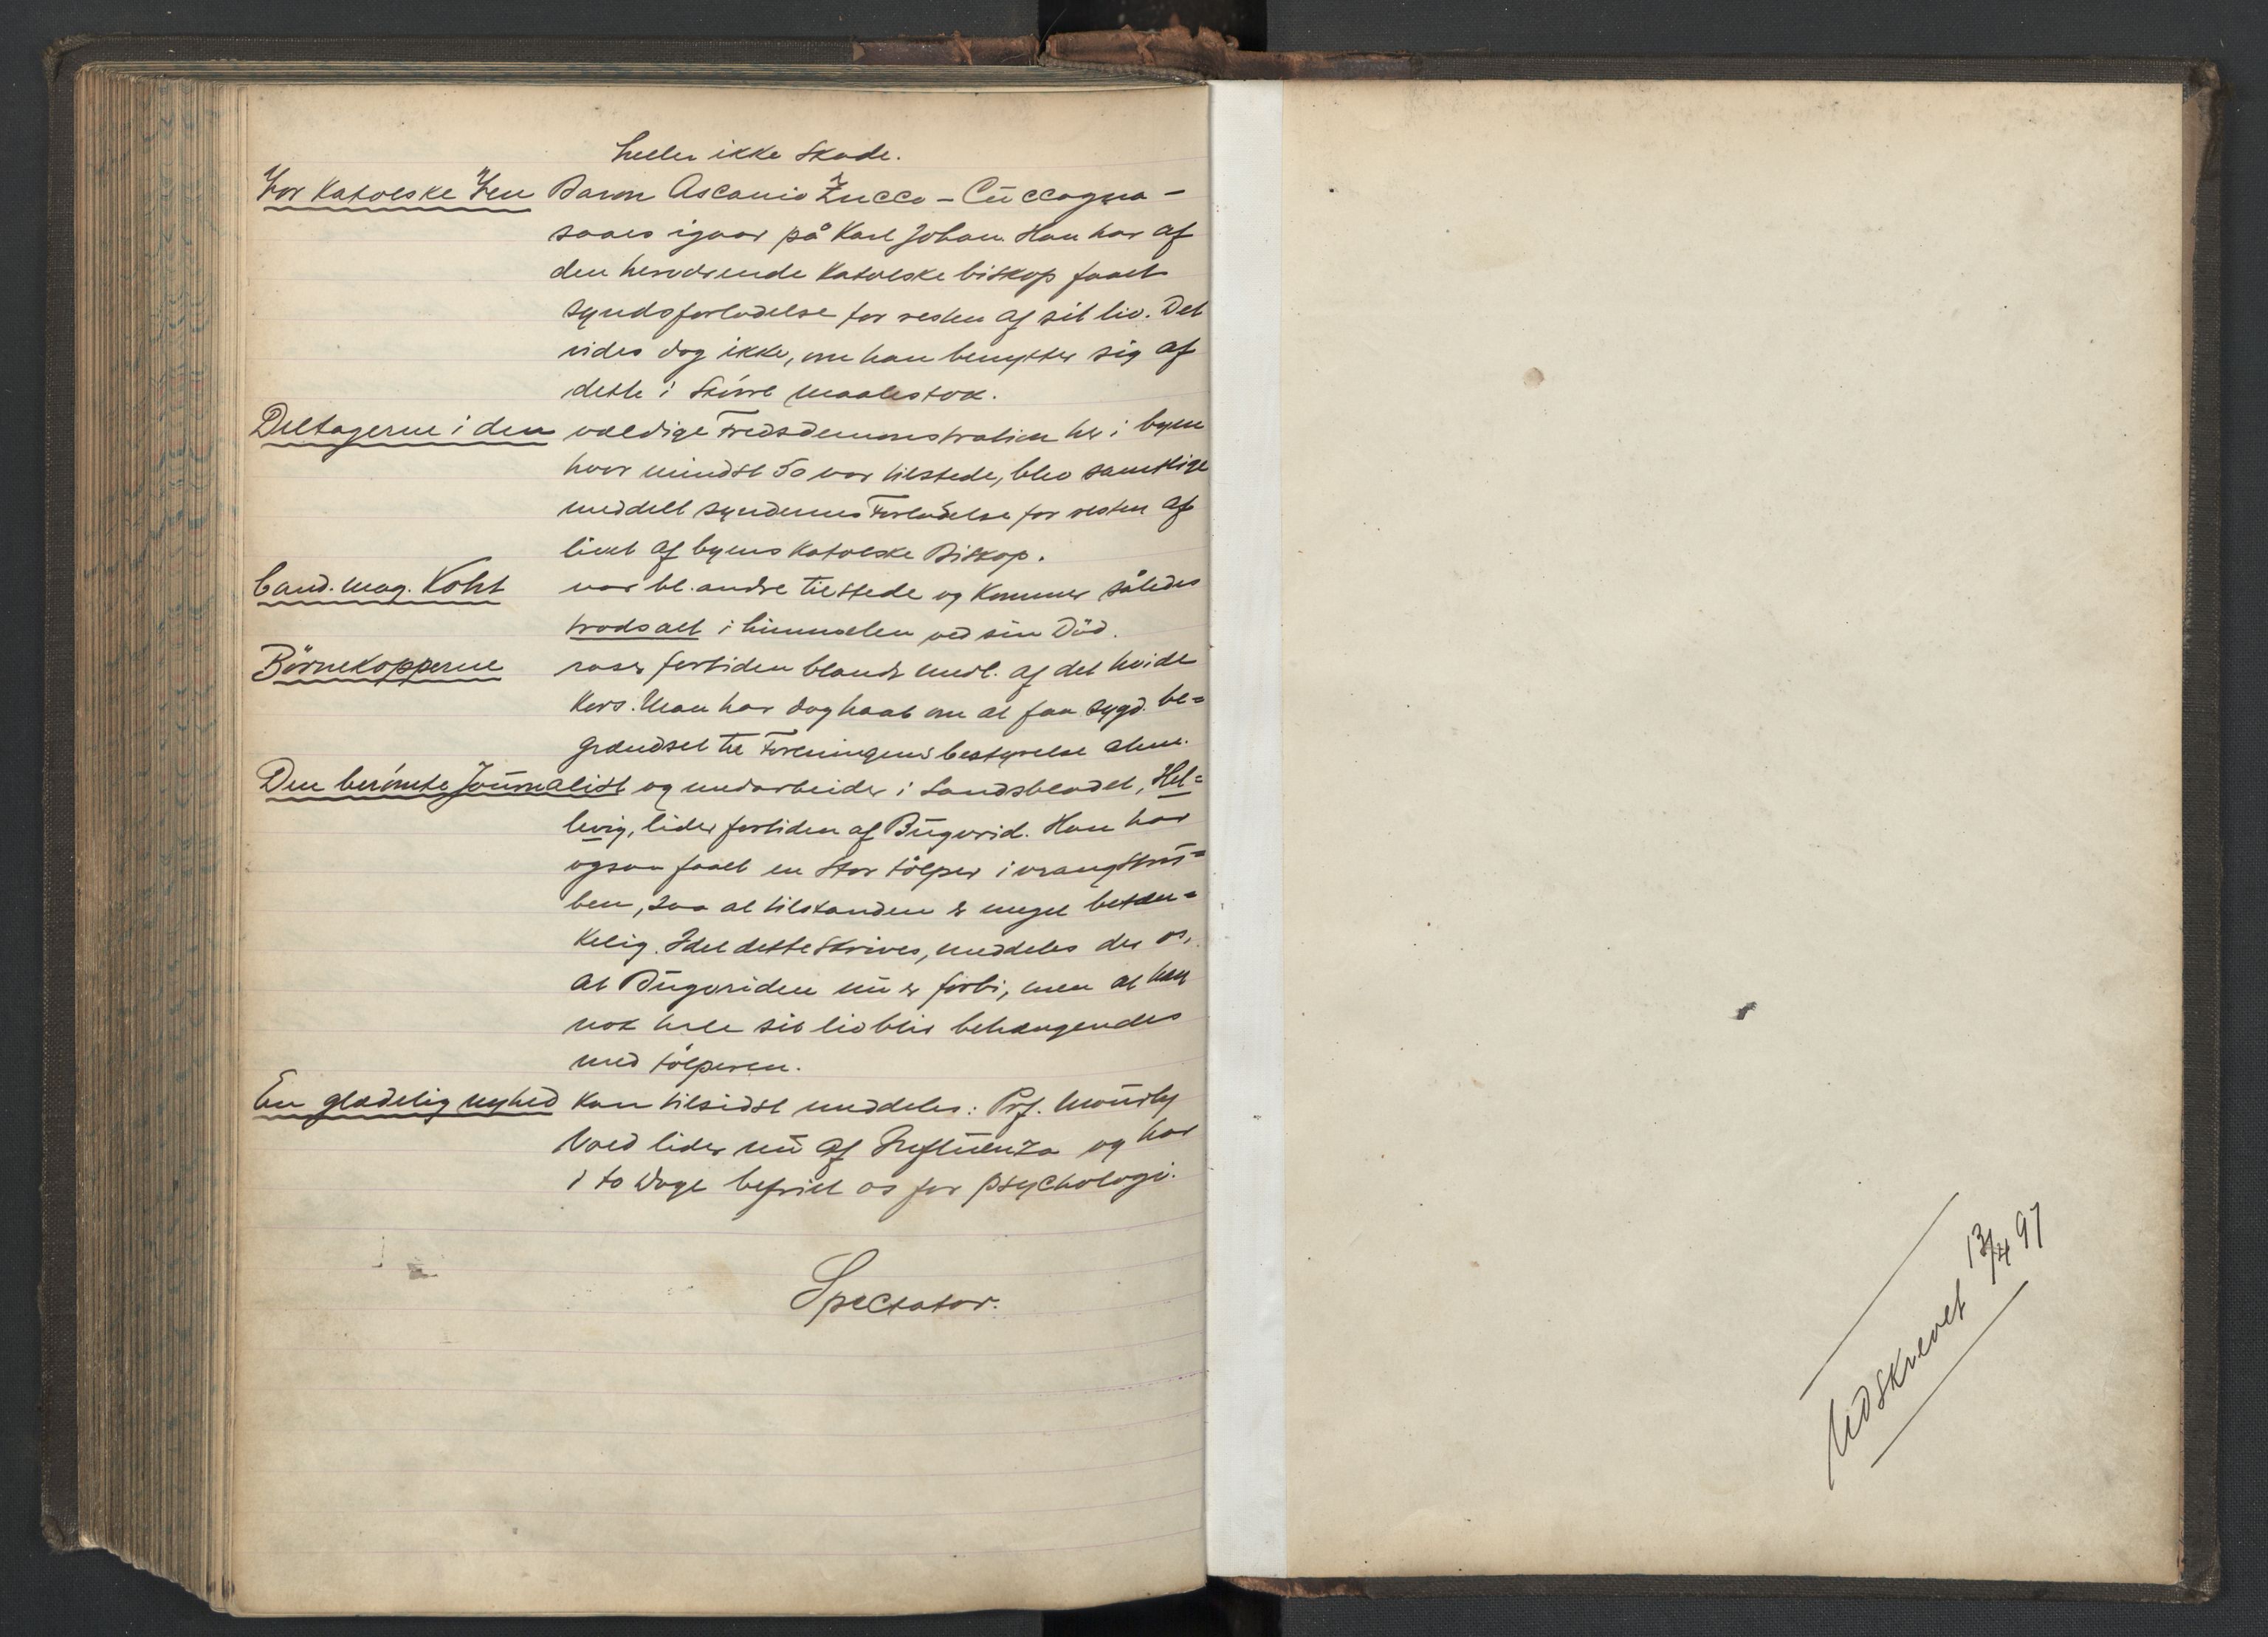 heller ikke skade.
Vor katolske Ven Baron Ascanio Zucco-Cuccagna-
saaes igaar på Karl Johan. Han har af
den herværende katolske biskop faaet
syndsforladelse for resten af sit liv. Det
vides dog ikke, om han benytter sig af
dette i större maalestok.
Deltagerne i den vældige Fredsdemonstration her i byen
hvor mindst 50 var tilstede, blev samtlige
meddelt syndernes Forladelse for resten af
livet af byens katolske Biskop.
Cand. mag. Koht var bl. andre tilstede og kommer således
trods alt i himmelen ved sin Död.
Börnekopperne raser fortiden blandt medl. af det hvide
Kors. Man har dog haab om at faa sygd. be=
grændset til Foreningens bestyrelse alene.
Den berömte Journalist og medarbeider i Landsbladet, Hel=
levig, lider fortiden af Bugvrid. Han har
ogsaa faaet en stor tölper i vrangstru=
ben, saa at tilstanden er meget betæn=
kelig. Idet dette skrives, meddeles der os,
at Bugvriden nu er forbi, men at han
nok hele sit liv blir behængendes
med tölperen.
En glædelig nyhed kan tilsidst meddeles: Prf. Mourly
Vold lider nu af Influenza og har
i to dage befriet os for psychologi.
Spectator.
Udskrevet 13/4 97